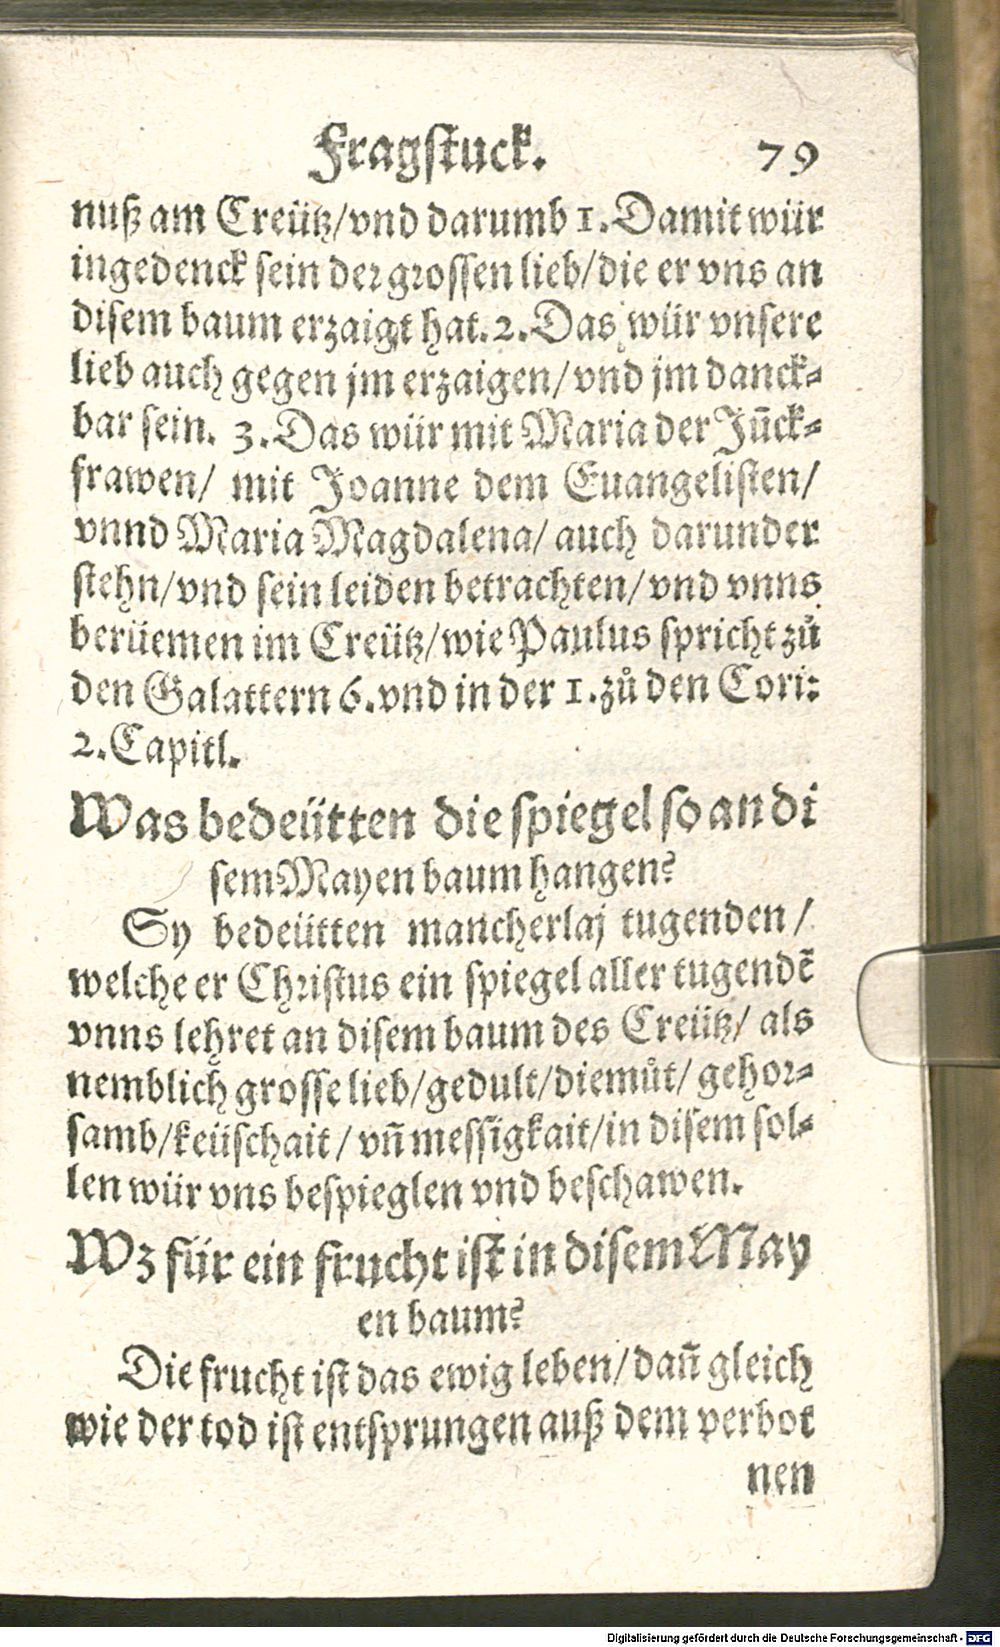 Fragstuck. 79
nuß am Creütz/vnd darumb 1. Damit wür
ingedenck sein der grossen lieb/die er vns an
disem baum erzaigt hat. 2. Das wür vnsere
lieb auch gegen jm erzaigen/vnd jm danck⸗
bar sein. 3. Das wür mit Maria der Jūck⸗
frawen/ mit Joanne dem Euangelisten/
vnnd Maria Magdalena/ auch darunder
stehn/vnd sein leiden betrachten/vnd vnns
berüemen im Creütz/wie Paulus spricht zů
den Galattern 6. vnd in der 1. zů den Cori:
2. Capitl.
Was bedeütten die spiegel so an di
sem Mayen baum hangen?
Sy bedeütten mancherlaj tugenden/
welche er Christus ein spiegel aller tugendē
vnns lehret an disem baum des Creütz/ als
nemblich grosse lieb/gedult/diemůt/ gehor⸗
samb/keüschait/ vn̄ messigkait/in disem sol⸗
len wür vns bespieglen vnd beschawen.
Wz für ein frucht ist in disem May
en baum?
Die frucht ist das ewig leben/dan̄ gleich
wie der tod ist entsprungen auß dem verbot
nen
Digitalisierung gefördert durch die Deutsche Forschungsgemeinschaft - DFG